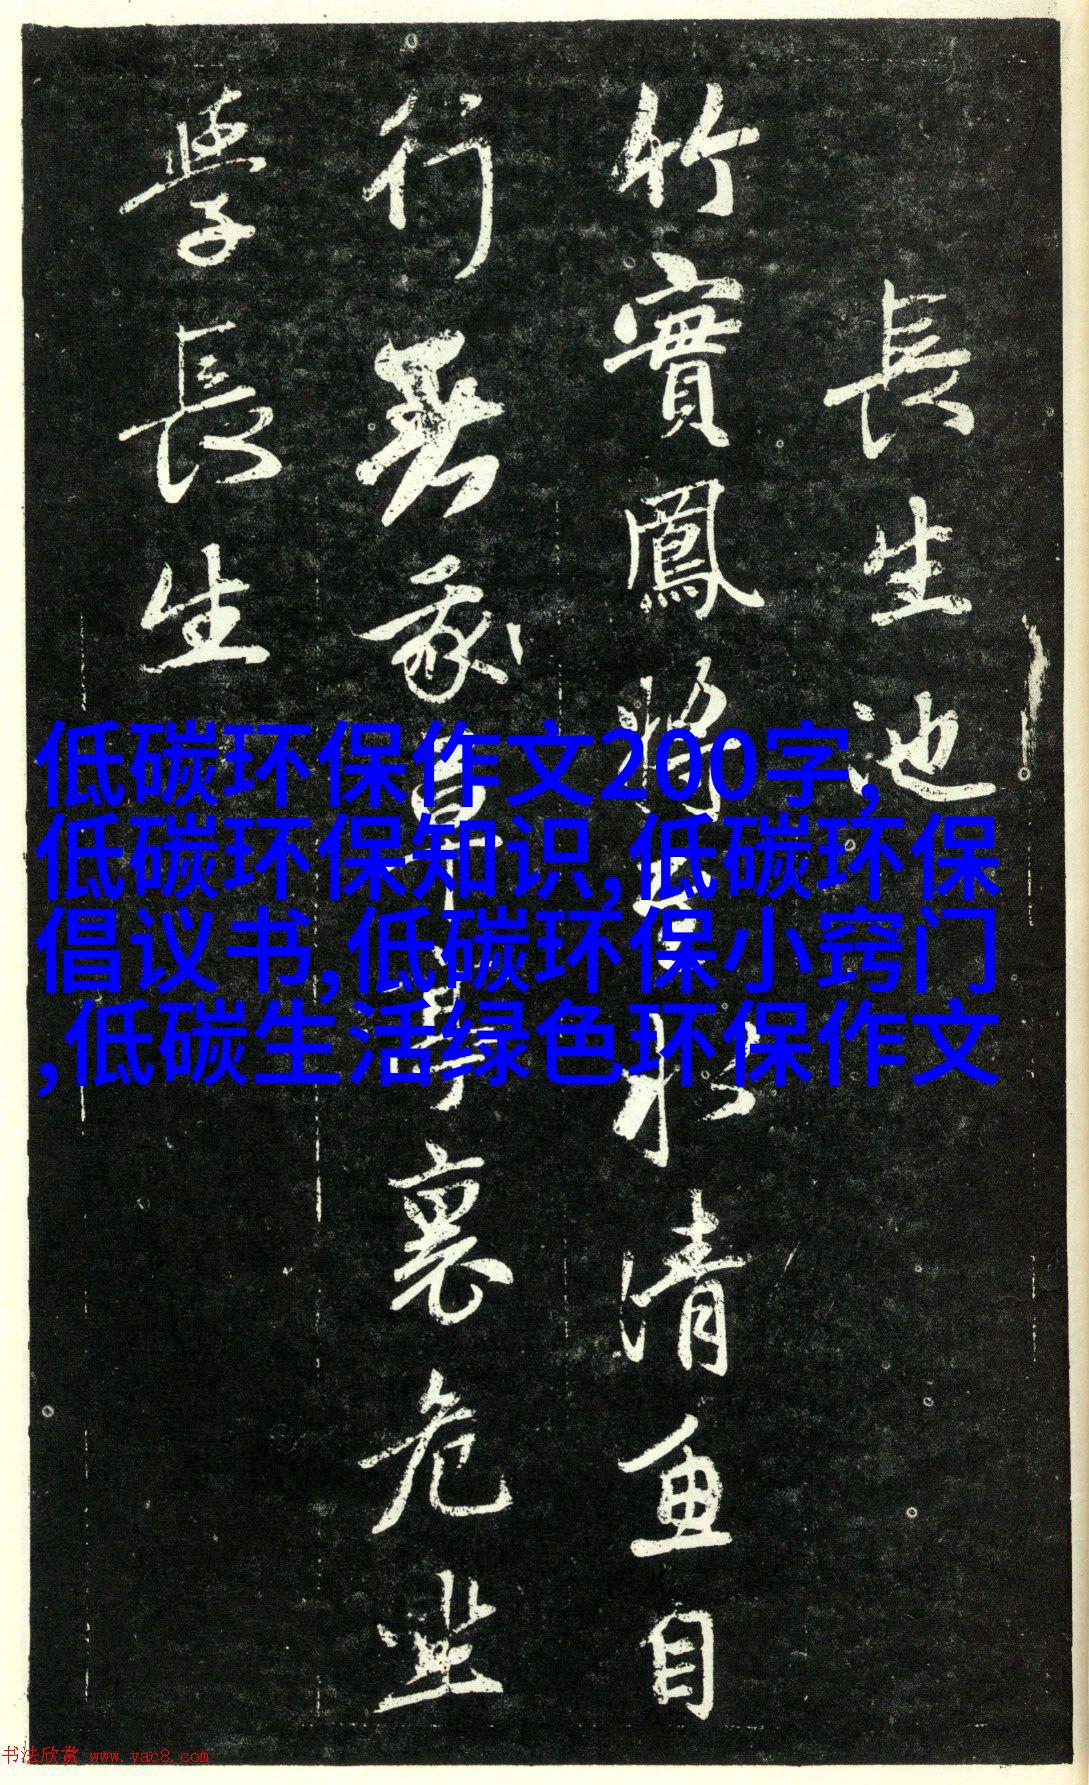 長生池
竹實鳳將至水清魚自
行家草亭裏危坐
學長生
低碳环保作文200字,
低碳环保知识,低碳环保
倡议书,低碳环保小窍门
,低碳生活绿色环保作文
书法欣赏 www.yac8.com